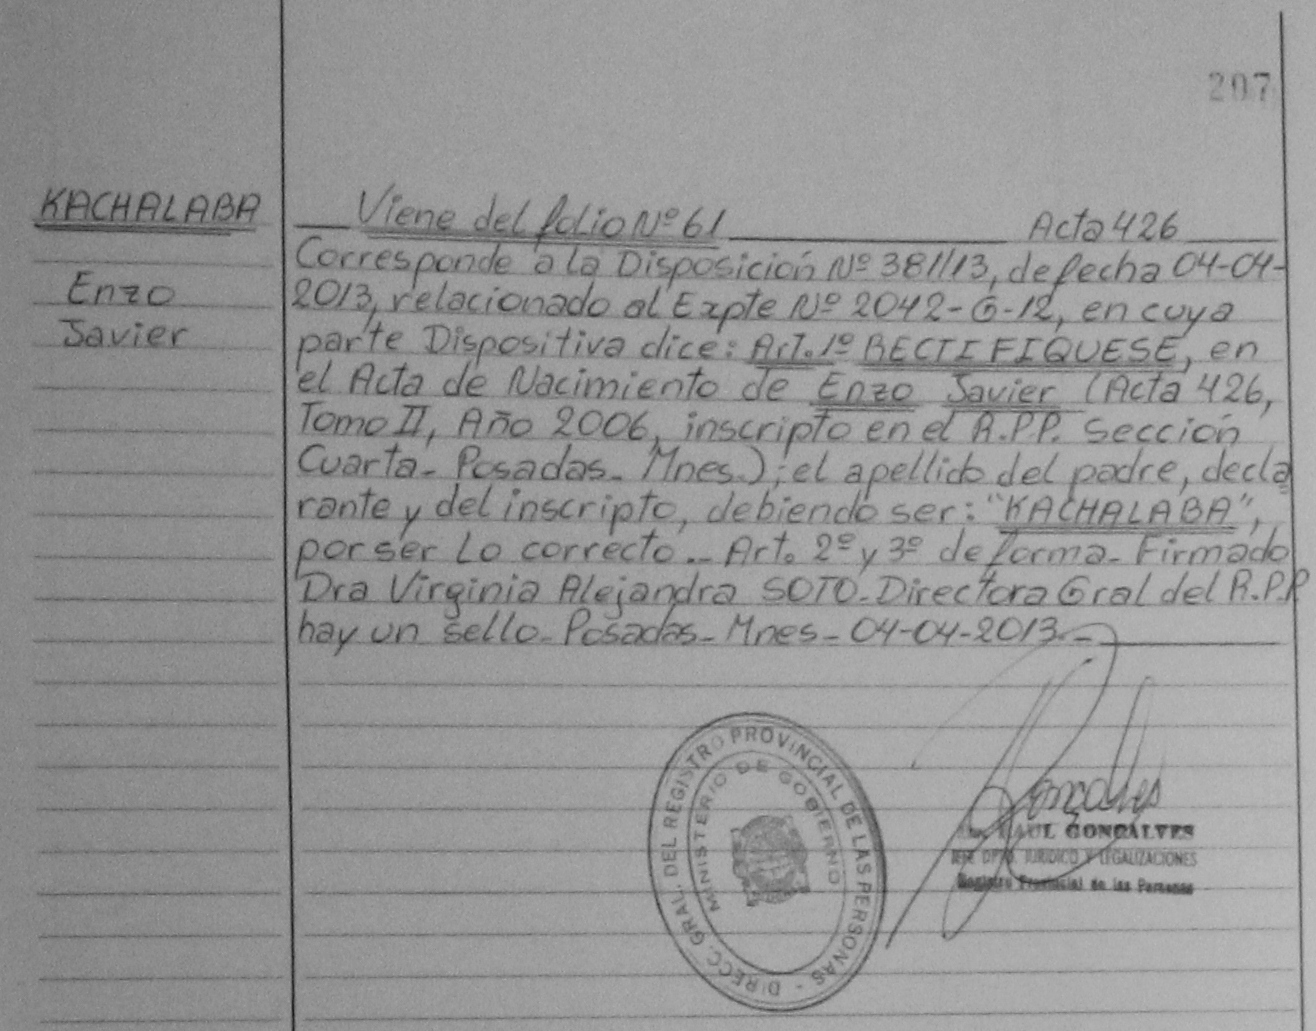 207
KACHALABA
Enzo
Javier
Viene del folio Nº 61 Acta 426
Corresponde a la Disposición Nº 381/13, de fecha 04-04-
2013, relacionado al Expte Nº 2042-G-12, en cuya
parte Dispositiva dice: Art. 1º RECTIFIQUESE, en
el Acta de Nacimiento de Enzo Javier (Acta 426,
Tomo II, Año 2006, inscripto en el R.P.P. Sección
Cuarta- Posadas- Mnes.); el apellido del padre, decla
rante y del inscripto, debiendo ser: "KACHALABA",
por ser lo correcto.- Art. 2º y 3º de forma- Firmado
Dra Virginia Alejandra SOTO- Directora Gral del R.P.P
hay un sello- Posadas- Mnes- 04-04-2013.-
DIRECC. GRAL. DEL REGISTRO PROVINCIAL DE LAS PERSONAS -
MINISTERIO DE GOBIERNO
Gonçalves
RAUL GONÇALVES
JEFE DPTO. JURIDICO Y LEGALIZACIONES
Registro Provincial de las Personas